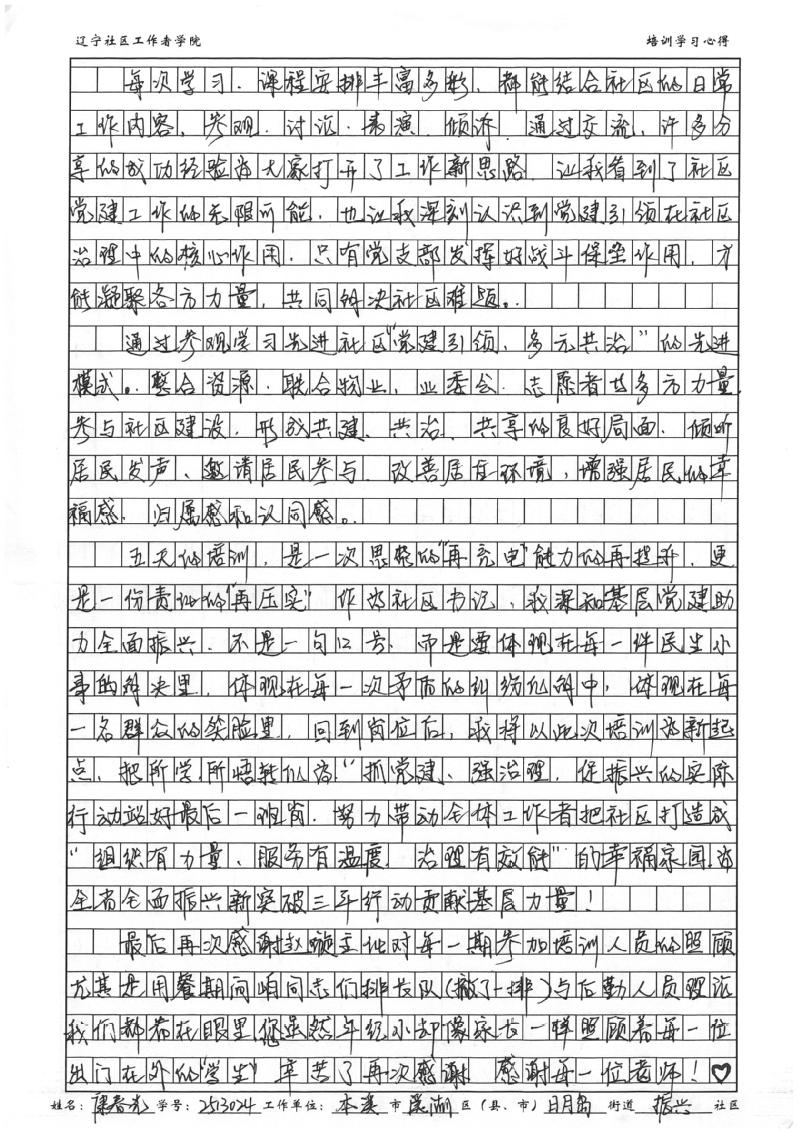 辽宁社区工作者学院 培训学习心得
每次学习，课程安排丰富多彩，都能结合社区的日常
工作内容，参观、讨论、表演、倾诉，通过交流，许多分
享的成功经验为大家打开了工作新思路，让我看到了社区
党建工作的无限可能，也让我深刻认识到党建引领在社区
治理中的核心作用，只有党支部发挥好战斗堡垒作用，才
能凝聚各方力量，共同解决社区难题。
通过参观学习先进社区"党建引领，多元共治"的先进
模式。整合资源，联合物业，业委会，志愿者等多方力量
参与社区建设，形成共建、共治、共享的良好局面，倾听
居民发声、邀请居民参与，改善居住环境，增强居民的幸
福感，归属感和认同感。
五天的培训，是一次思想的"再充电"能力的再提升，更
是一份责任的"再压实"作为社区书记，我深知基层党建助
力全面振兴，不是一句口号，而是要体现在每一件民生小
事的解决里，体现在每一次矛盾的纠纷化解中，体现在每
一名群众的笑脸里，回到岗位后，我将以此次培训为新起
点，把所学所悟转化为"抓党建、强治理，促振兴的实际
行动站好最后一班岗，努力带动全体工作者把社区打造成
"组织有力量、服务有温度，治理有效能"的幸福家园，为
全省全面振兴新突破三年行动贡献基层力量！
最后再次感谢赵璇主任对每一期参加培训人员的照顾
尤其是用餐期间咱同志们排长队(撤了一排)与后勤人员理论
我们都看在眼里，您虽然年轻小却像家长一样照顾着每一位
出门在外的"学生"辛苦了再次感谢 感谢每一位老师！♡
姓名：康春光 学号：2513024 工作单位：本溪 市 溪湖 区（县、市） 日月岛 街道 振兴 社区